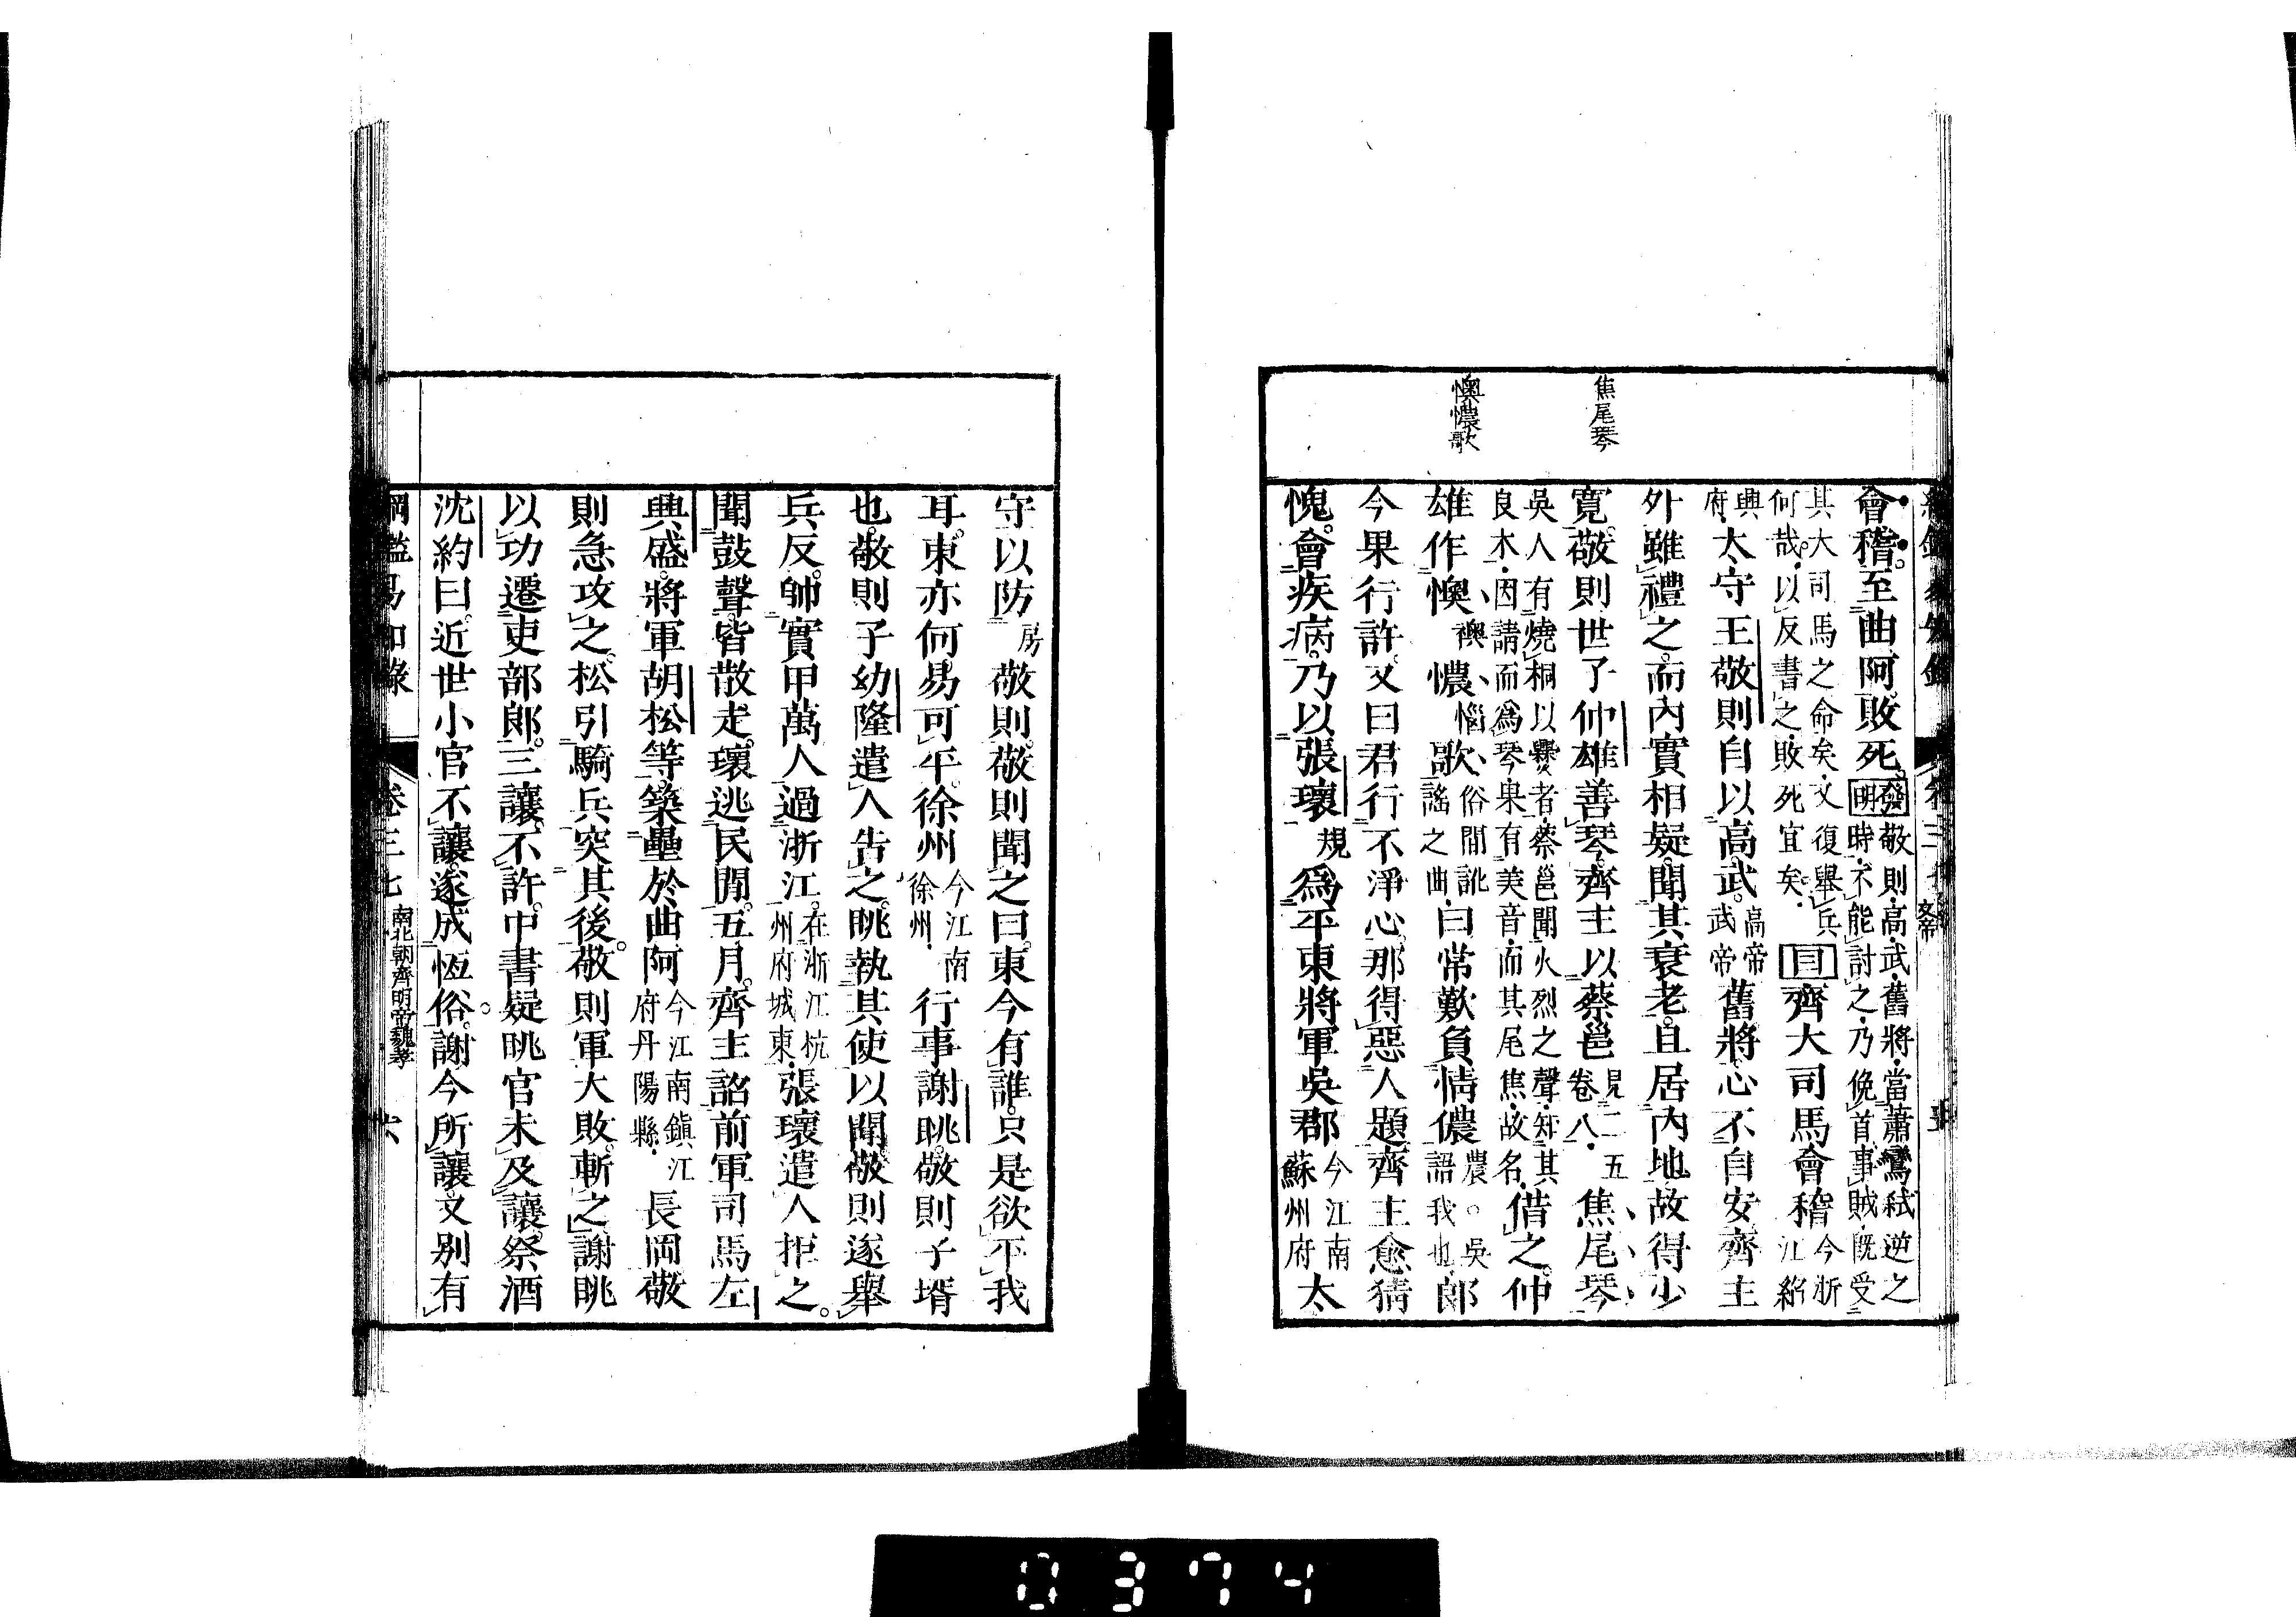 焦尾琴
懊憹歌
會稽。至曲阿。敗死。發明敬則高武舊將。當蕭鸞弑逆之時。不能討之。乃俛首事賊。既受
其大司馬之命矣。又復舉兵何哉。以反書之。敗死宜矣。目齊大司馬會稽今浙江紹
興府。太守王敬則。自以高武。高帝武帝舊將。心不自安。齊主
外雖禮之。而內實相疑。聞其衰老。且居內地。故得少
寬。敬則世子仲雄善琴。齊主以蔡邕見二五卷八。焦尾琴
吳人有燒桐以爨者。蔡邕聞火烈之聲。知其良木。因請而爲琴。果有美音。而其尾焦。故名。借之。仲
雄作懊襖憹惱歌。俗閒訛謠之曲。曰常歎負情儂農。吳語我也。郎
今果行許。又曰君行不淨心。那得惡人題。齊主愈猜
愧。會疾病。乃以張瓌規爲平東將軍吳郡今江南蘇州府太
守以防房敬則。敬則聞之曰。東今有誰。只是欲平我
耳。東亦何易可平。徐州今江南徐州。行事謝朓。敬則子壻
也。敬則子幼隆遣人告之。朓執其使以聞。敬則遂舉
兵反。帥實甲萬人過浙江。在浙江杭州府城東。張瓌遣人拒之。
聞鼓聲皆散走。瓌逃民閒。五月。齊主詔前軍司馬左
興盛。將軍胡松等築壘於曲阿今江南鎭江府丹陽縣。長岡。敬
則急攻之。松引騎兵突其後。敬則軍大敗。斬之。謝朓
以功遷吏部郎。三讓。不許。中書疑朓官未及讓。祭酒
沈約曰。近世小官不讓。遂成恆俗。謝今所讓。又別有
綱鑑易知錄 卷三七 南北朝齊明帝魏孝 六
0374